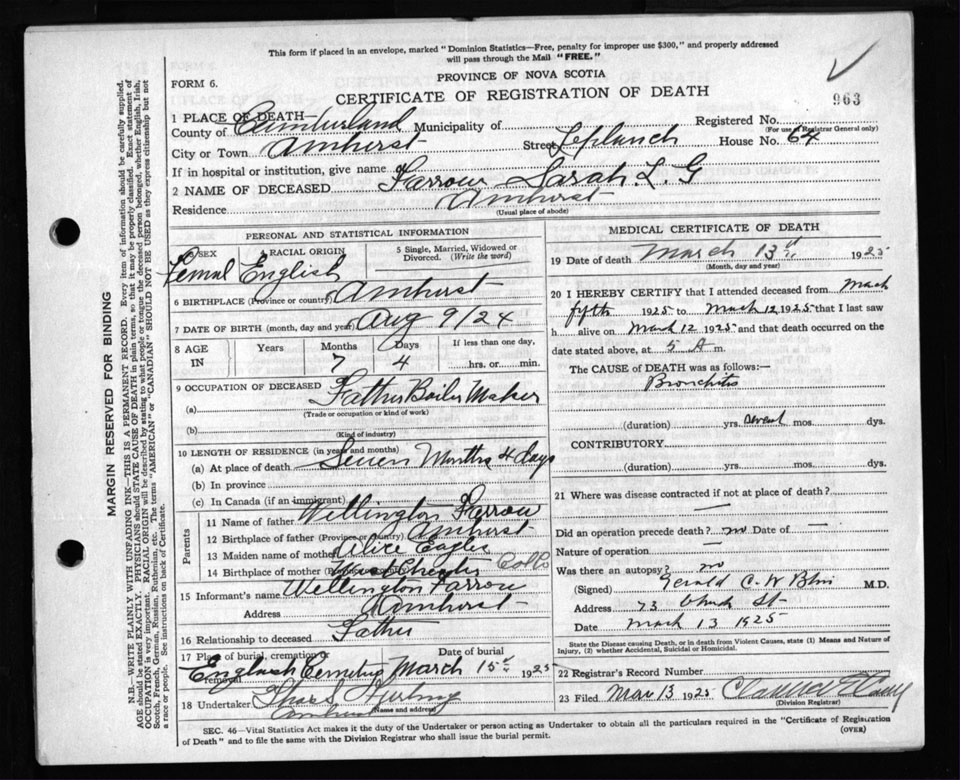 This form if placed in an envelope, marked "Dominion Statistics—Free, penalty for improper use $300," and properly addressed
will pass through the Mail "FREE."
PROVINCE OF NOVA SCOTIA
FORM 6.
CERTIFICATE OF REGISTRATION OF DEATH
963
1 PLACE OF DEATH—
County of Cumberland Municipality of Registered No.
(For use of Registrar General only)
City or Town Amherst Street Laplanch House No. 64
If in hospital or institution, give name of
2 NAME OF DECEASED Farrow Sarah L. G
Residence Amherst
(Usual place of abode)
PERSONAL AND STATISTICAL INFORMATION
3 SEX 4 RACIAL ORIGIN 5 Single, Married, Widowed or Divorced. (Write the word)
Femal English
6 BIRTHPLACE (Province or country) Amherst
7 DATE OF BIRTH (month, day and year) Aug 9/24
8 AGE IN Years Months Days If less than one day,
7 4 hrs. or min.
9 OCCUPATION OF DECEASED
(a) Father Boiler Maker
(Trade or occupation or kind of work)
(b)
(Kind of industry)
10 LENGTH OF RESIDENCE (in years and months)
(a) At place of death Seven Months 4 days
(b) In province
(c) In Canada (if an immigrant)
Parents
11 Name of father Wellington Farrow
12 Birthplace of father (Province or country) Amherst
13 Maiden name of mother Alice Eagles
14 Birthplace of mother (Province or country) Westchester Colb
15 Informant's name Wellington Farrow
Address Amherst
16 Relationship to deceased Father
17 Place of burial, cremation or removal Date of burial
English Cemetery March 15th 1925
18 Undertaker
Amherst
(Name and address)
MEDICAL CERTIFICATE OF DEATH
19 Date of death March 13th 1925
(Month, day and year)
20 I HEREBY CERTIFY that I attended deceased from Mach
fifth 1925 to Mach 12, 1925 and that I last saw
h alive on March 12 1925 and that death occurred on the
date stated above, at 5 A m.
The CAUSE of DEATH was as follows:—
Bronchitis
(duration) yrs. mos. dys.
CONTRIBUTORY
(duration) yrs. mos. dys.
21 Where was disease contracted if not at place of death?
—
Did an operation precede death? no Date of —
Nature of operation —
Was there an autopsy? no
(Signed) Gerald C. W. M.D.
Address 73 Church St
Date Mach 13 1925
State the Disease causing Death, or in death from Violent Causes, state (1) Means and Nature of
Injury, (2) whether Accidental, Suicidal or Homicidal.
22 Registrar's Record Number
23 Filed Mar 13 1925 Clarence
(Division Registrar)
SEC. 46—Vital Statistics Act makes it the duty of the Undertaker or person acting as Undertaker to obtain all the particulars required in the "Certificate of Registration
of Death" and to file the same with the Division Registrar who shall issue the burial permit.
(OVER)
MARGIN RESERVED FOR BINDING
N.B.—WRITE PLAINLY WITH UNFADING INK—THIS IS A PERMANENT RECORD. Every item of information should be carefully supplied.
AGE should be stated EXACTLY. PHYSICIANS should STATE CAUSE OF DEATH in plain terms, so that it may be properly classified. Exact statement of
OCCUPATION is very important. RACIAL ORIGIN will be described by stating to what people or tongue the deceased person belonged, whether English, Irish,
Scotch, French, German, Russian, Ruthenian, etc. The terms "AMERICAN" or "CANADIAN" SHOULD NOT BE USED as they express citizenship but not
a race or people. See instructions on back of Certificate.